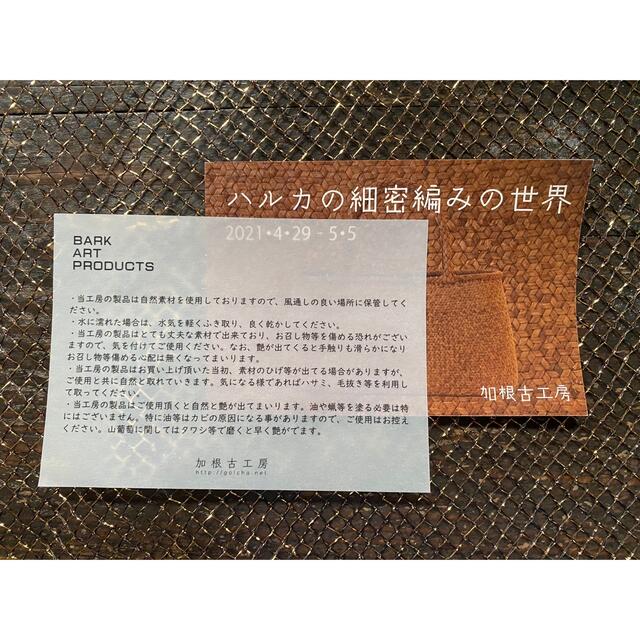 ハルカの細密編みの世界
2021・4・29 - 5・5
加根古工房
BARK
ART
PRODUCTS
・当工房の製品は自然素材を使用しておりますので、風通しの良い場所に保管してく
ださい。
・水に濡れた場合は、水気を軽くふき取り、良く乾かしてください。
・当工房の製品はとても丈夫な素材で出来ており、お召し物等を傷める恐れがござい
ますので、気を付けてご使用ください。なお、艶が出てくると手触りも滑らかになり
お召し物等傷める心配は無くなってまいります。
・当工房の製品はお買い上げ頂いた当初、素材のひげ等が出てる場合がありますが、
ご使用と共に自然と取れていきます。気になる様であればハサミ、毛抜き等を利用し
て取ってください。
・当工房の製品はご使用頂くと自然と艶が出てまいります。油や蝋等を塗る必要は特
にはございません。特に油等はカビの原因になる事がありますので、ご使用はお控え
ください。山葡萄に関してはタワシ等で磨くと早く艶がでます。
加根古工房
http://golcha.net